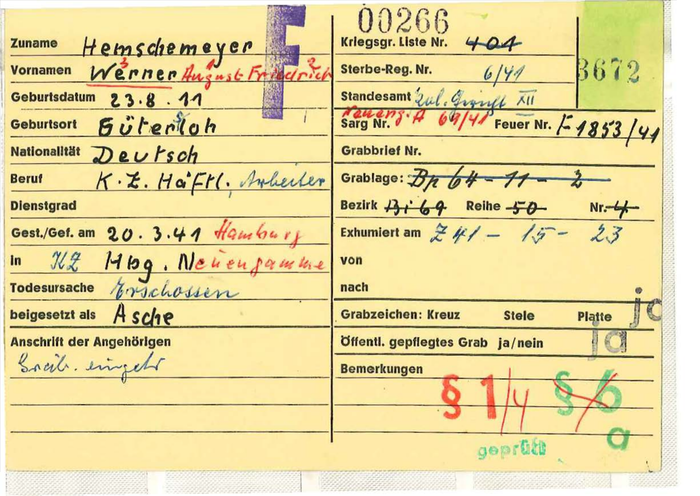 F
00266
3672
Zuname Hemschemeyer
Vornamen Werner August Friedrich
3 1 2
Geburtsdatum 23.8.11
Geburtsort Gütersloh
Nationalität Deutsch
Beruf K.Z. Häftl., Arbeiter
Dienstgrad
Gest./Gef. am 20.3.41 Hamburg
in KZ Hbg. Neuengamme
Todesursache Erschossen
beigesetzt als Asche
Anschrift der Angehörigen
Kriegsgr. Liste Nr. 401
Sterbe-Reg. Nr. 6/41
Standesamt XII
A 69/41
Sarg Nr. Feuer Nr. F 1853/41
Grabbrief Nr.
Grablage: Bp 64 - 11 - 2
Bezirk Bi 69 Reihe 50 Nr. 4
Exhumiert am Z 41 - 15 - 23
von
nach
Grabzeichen: Kreuz Stele Platte ja
Öffentl. gepflegtes Grab ja/nein ja
Bemerkungen
§ 1/4 § 6
a
geprüft